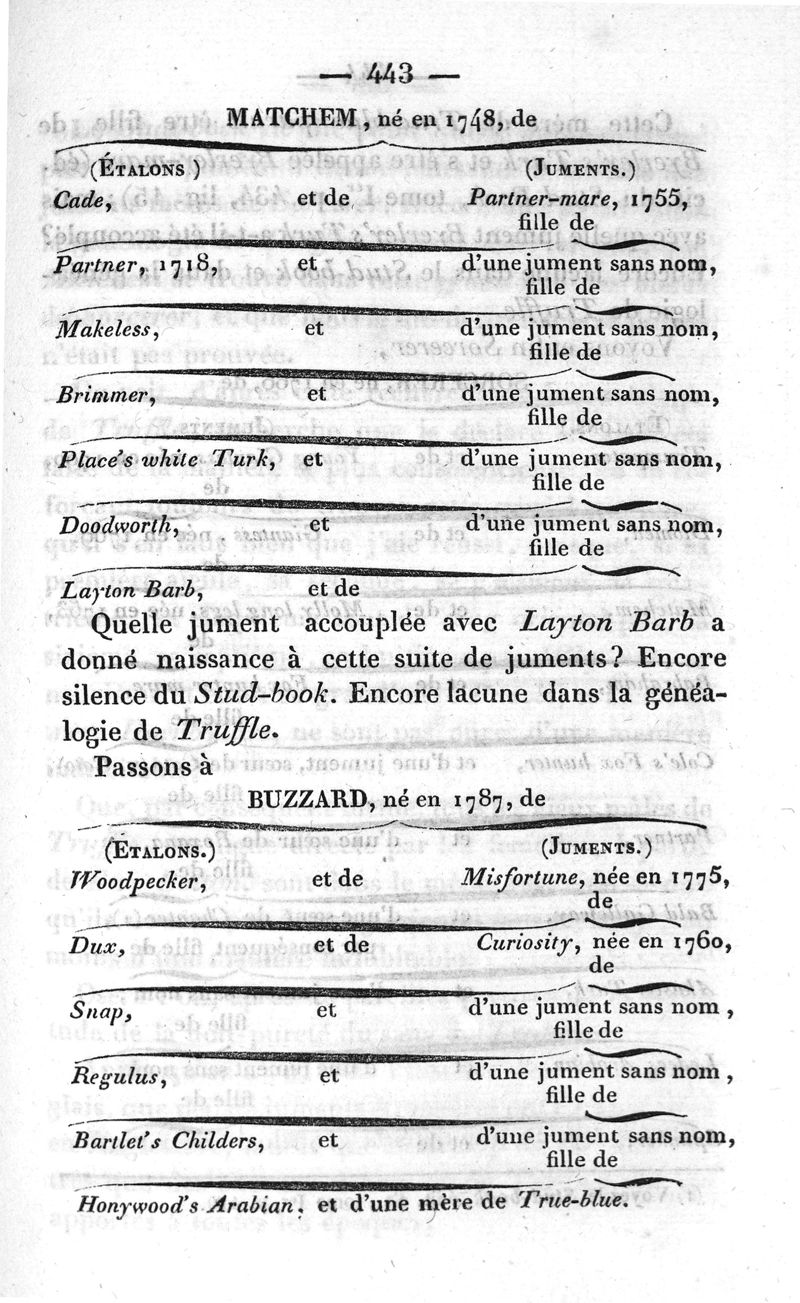 — 443 —
MATCHEM, né en 1748, de
(ÉTALONS) (JUMENTS.)
Cade, et de Partner-mare, 1755,
fille de
Partner, 1718, et d'une jument sans nom,
fille de
Makeless, et d'une jument sans nom,
fille de
Brimmer, et d'une jument sans nom,
fille de
Place's white Turk, et d'une jument sans nom,
fille de
Doodworth, et d'une jument sans nom,
fille de
Layton Barb, et de
Quelle jument accouplée avec Layton Barb a
donné naissance à cette suite de juments? Encore
silence du Stud-book. Encore lacune dans la généa-
logie de Truffle.
Passons à
BUZZARD, né en 1787, de
(ÉTALONS.) (JUMENTS.)
Woodpecker, et de Misfortune, née en 1775,
de
Dux, et de Curiosity, née en 1760,
de
Snap, et d'une jument sans nom,
fille de
Regulus, et d'une jument sans nom,
fille de
Bartlet's Childers, et d'une jument sans nom,
fille de
Honywood's Arabian. et d'une mère de True-blue.